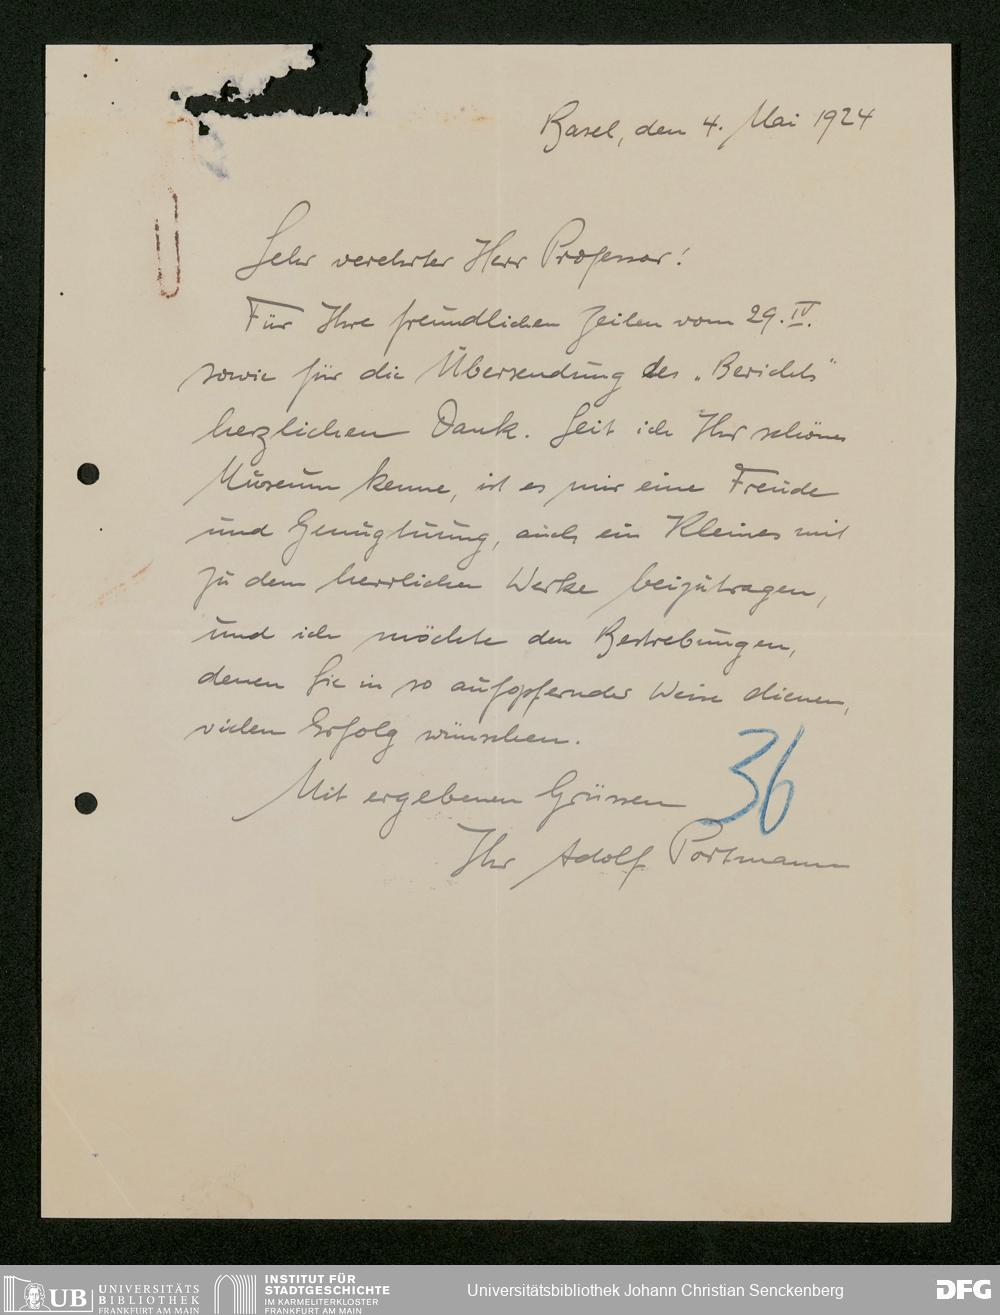 Basel, den 4. Mai 1924
Sehr verehrter Herr Professor!
Für Ihre freundlichen Zeilen vom 29. IV.
sowie für die Übersendung des „Berichts"
herzlichen Dank. Seit ich Ihr schönes
Museum kenne, ist es mir eine Freude
und Genugtuung, auch ein Kleines mit
zu dem herrlichen Werke beizutragen,
und ich möchte den Bestrebungen,
denen Sie in so aufopfernder Weise dienen,
vielen Erfolg wünschen.
Mit ergebenen Grüssen
36
Ihr Adolf Portmann
UB UNIVERSITÄTS
BIBLIOTHEK
FRANKFURT AM MAIN
INSTITUT FÜR
STADTGESCHICHTE
IM KARMELITERKLOSTER
FRANKFURT AM MAIN
Universitätsbibliothek Johann Christian Senckenberg
DFG